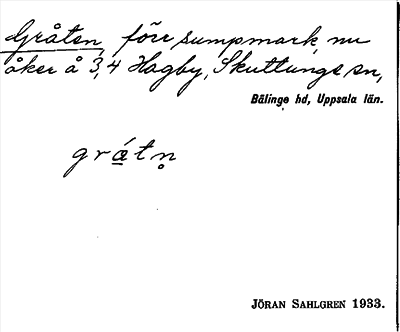 Gråten, förr sumpmark, nu
åker å 3, 4 Hagby, Skuttunge sn,
Bälinge hd, Uppsala län.
grá̲tn̥
JÖRAN SAHLGREN 1933.